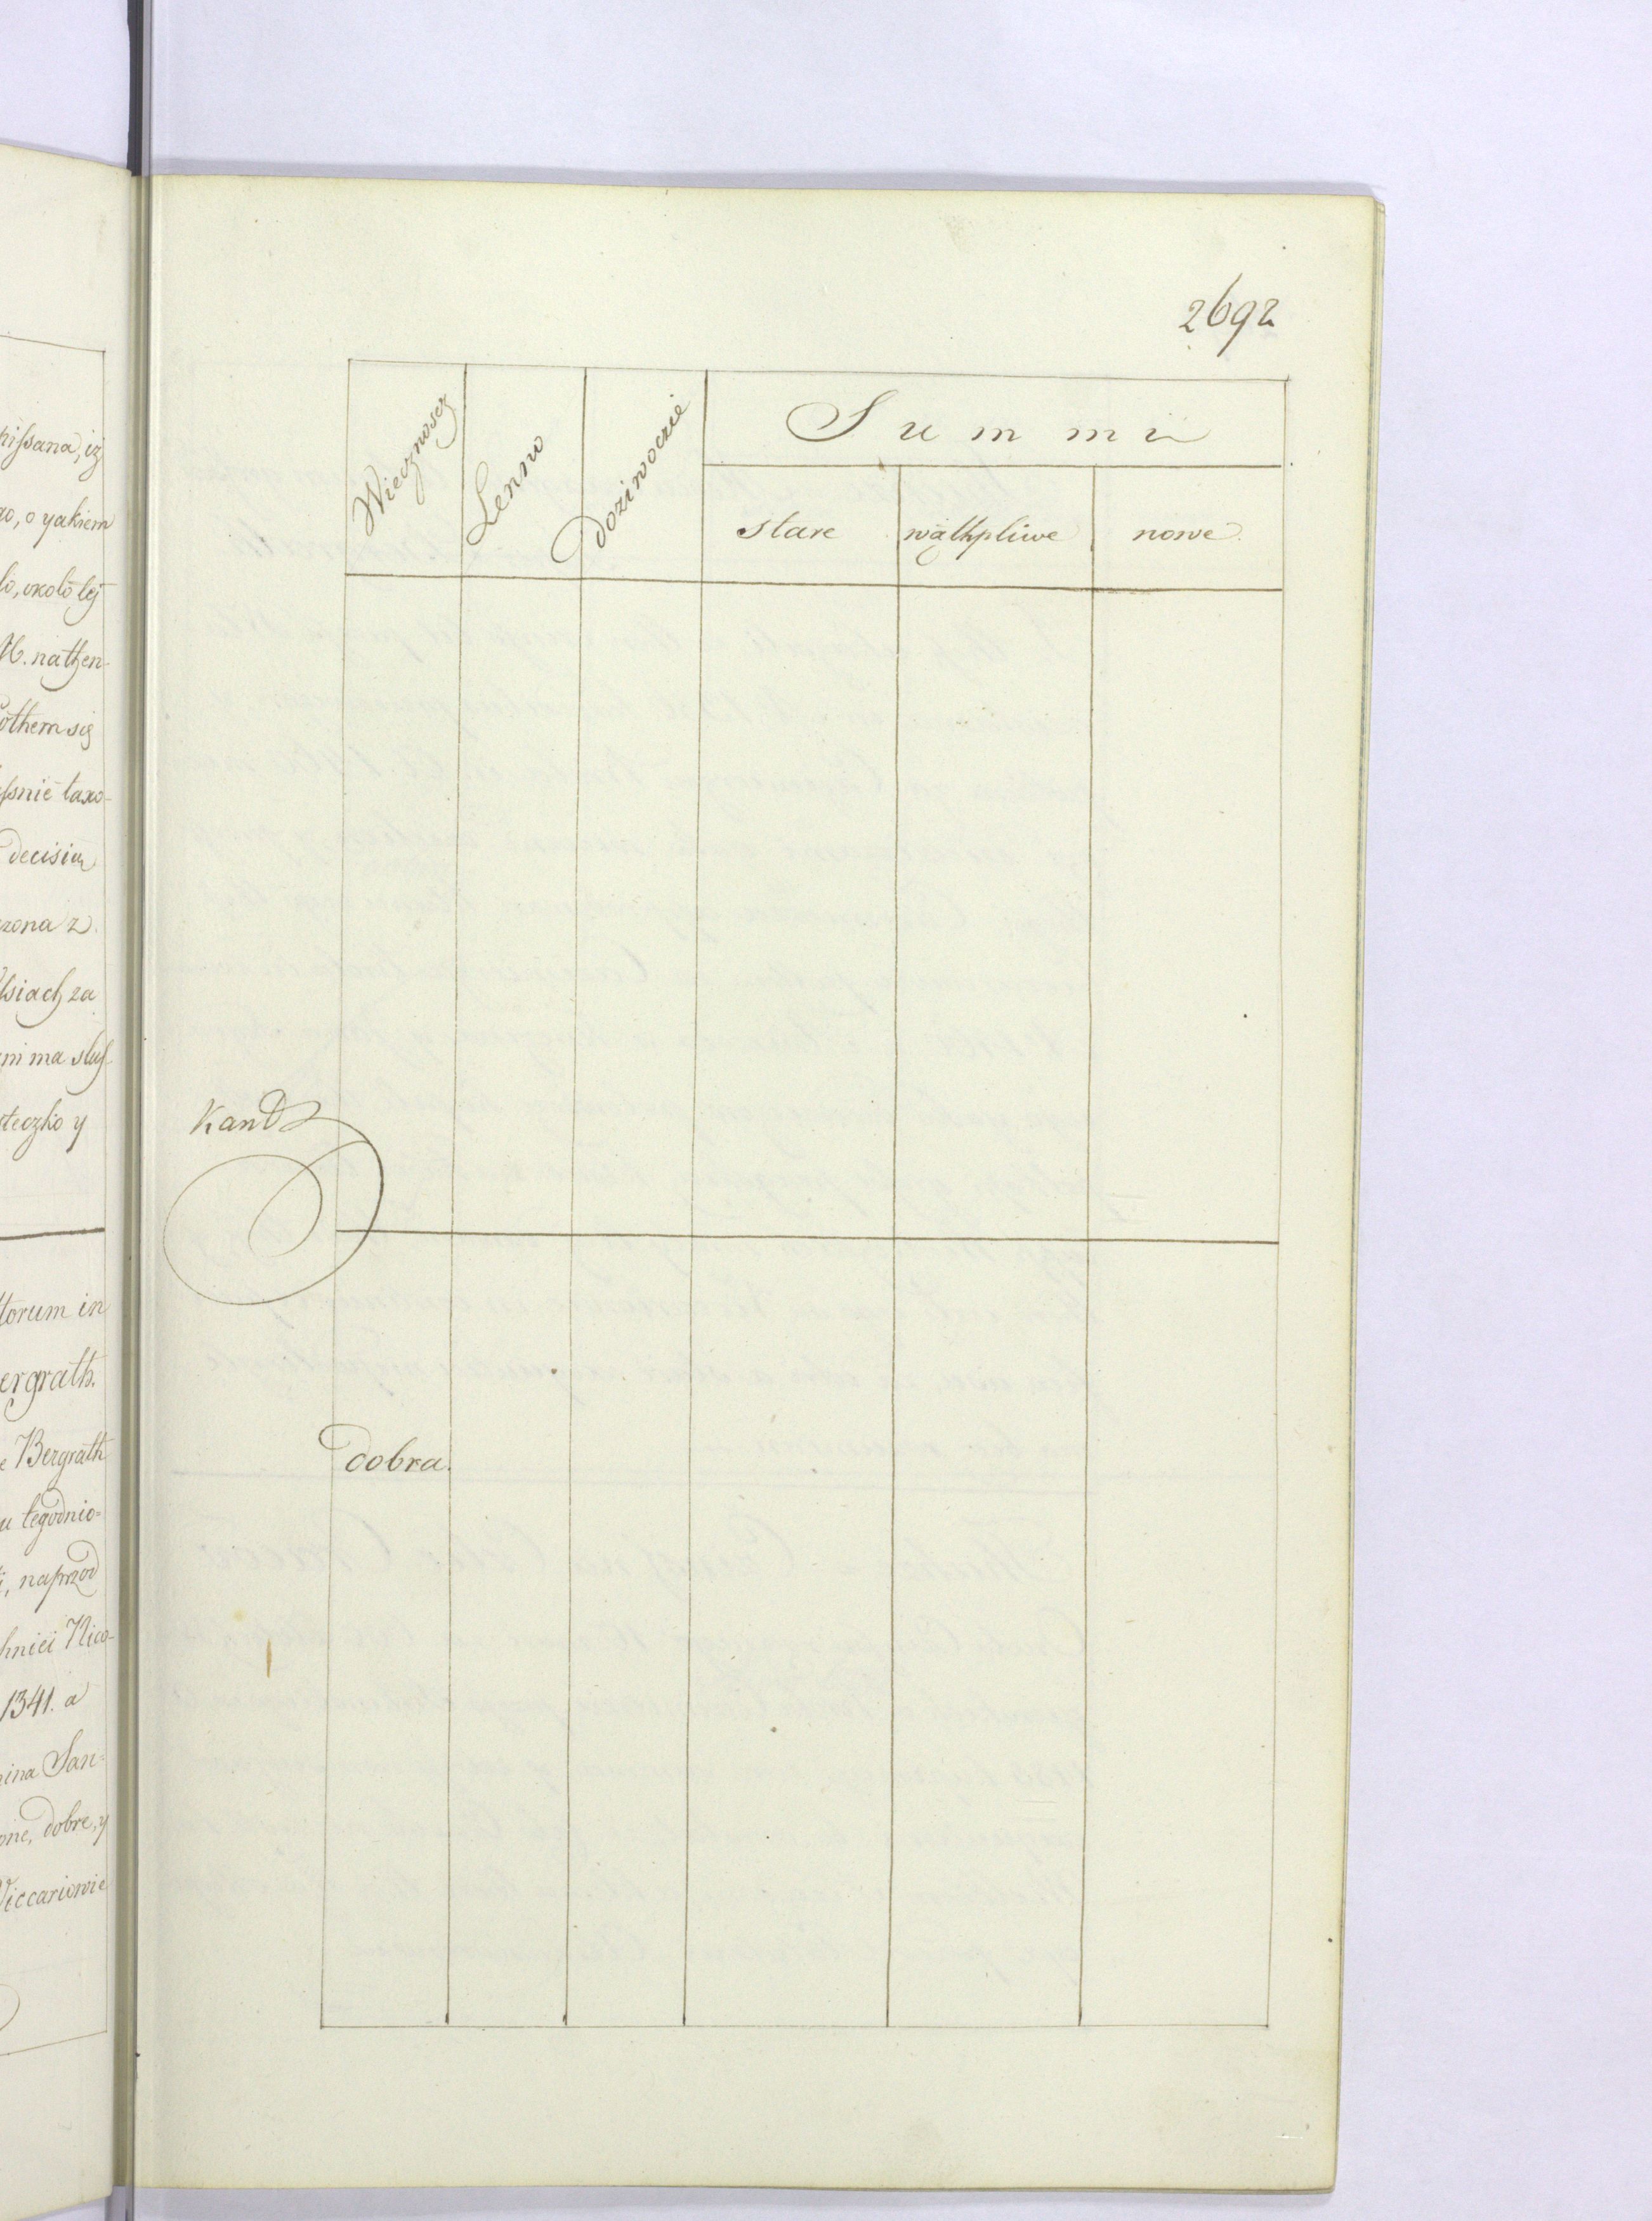 pissana, iz
go, o yakiem
lo, około tej
M. nathen-
pothem się
ssnie taxo-
decisią
zona z
Wsiach za
ni ma sluss-
steczko y
ttorum in
ergrath.
e Bergrath
u tegodnio=
i, naprzod
hnici Nico-
1341. a
nina San=
one, dobre, y
Viccariowie
2692
Wiecznoscz
Lenno
Doziwoczie
Summi
stare
wąthpliwe
nowe
Kandz
dobra.